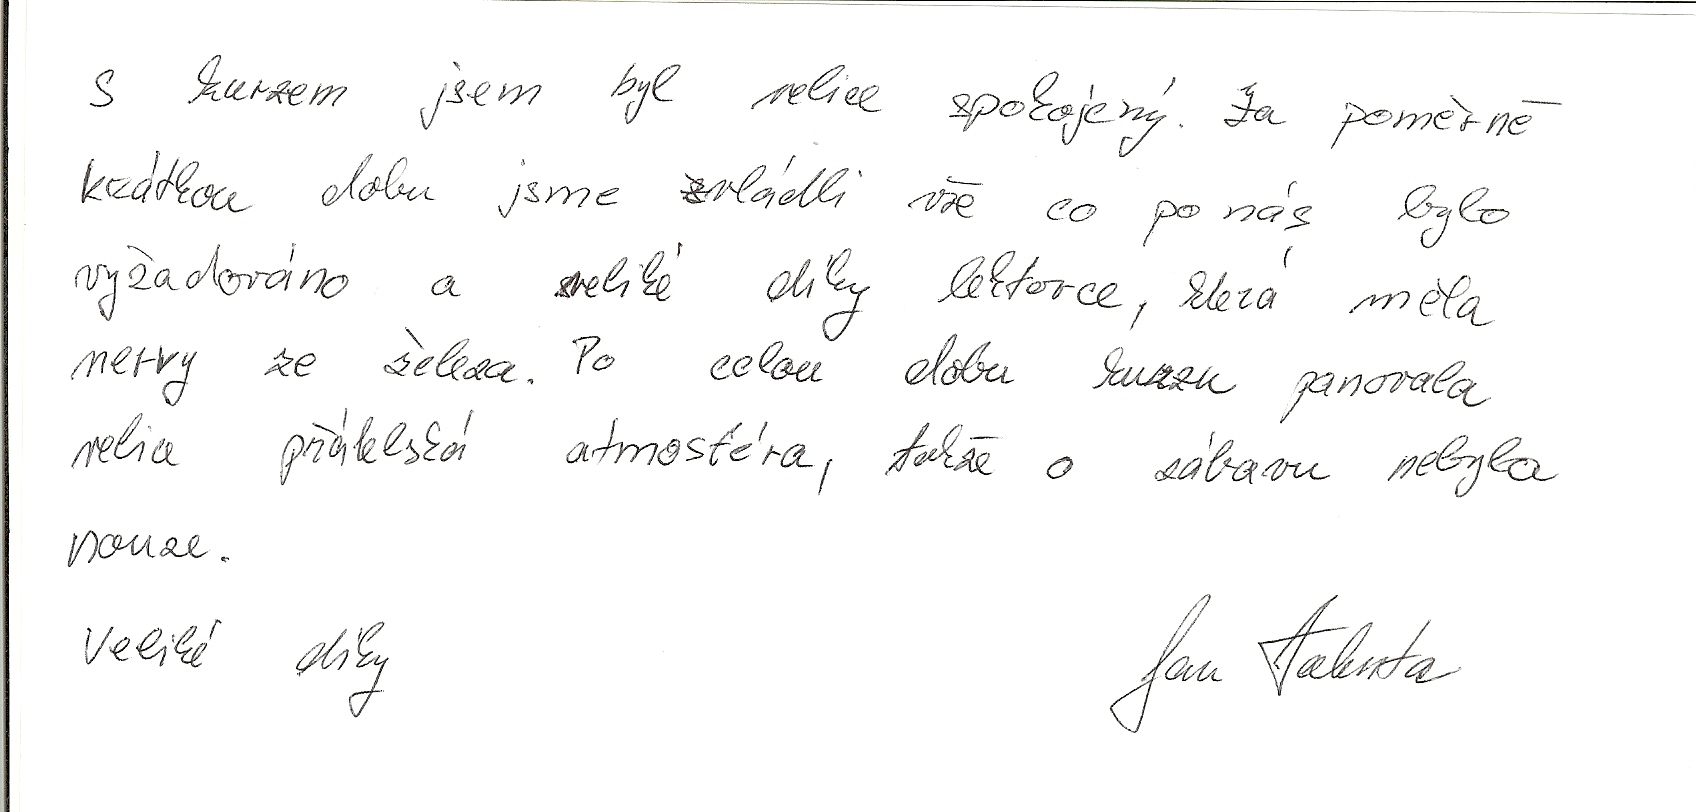 S kurzem jsem byl velice spokojený. Za poměrně
krátkou dobu jsme zvládli vše co po nás bylo
vyžadováno a veliké díky lektorce, která měla
nervy ze železa. Po celou dobu kurzu panovala
velice přátelská atmosféra, takže o zábavu nebyla
nouze.
Veliké díky
Jan